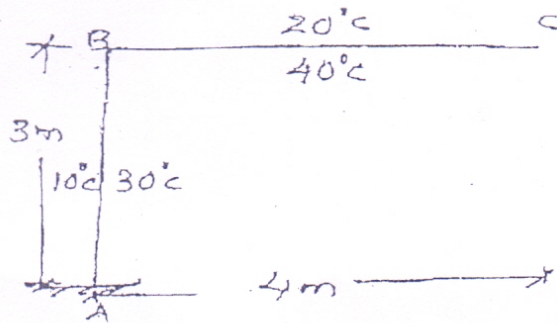 B 20°C C
40°C
3m
10°C 30°C
4m
A